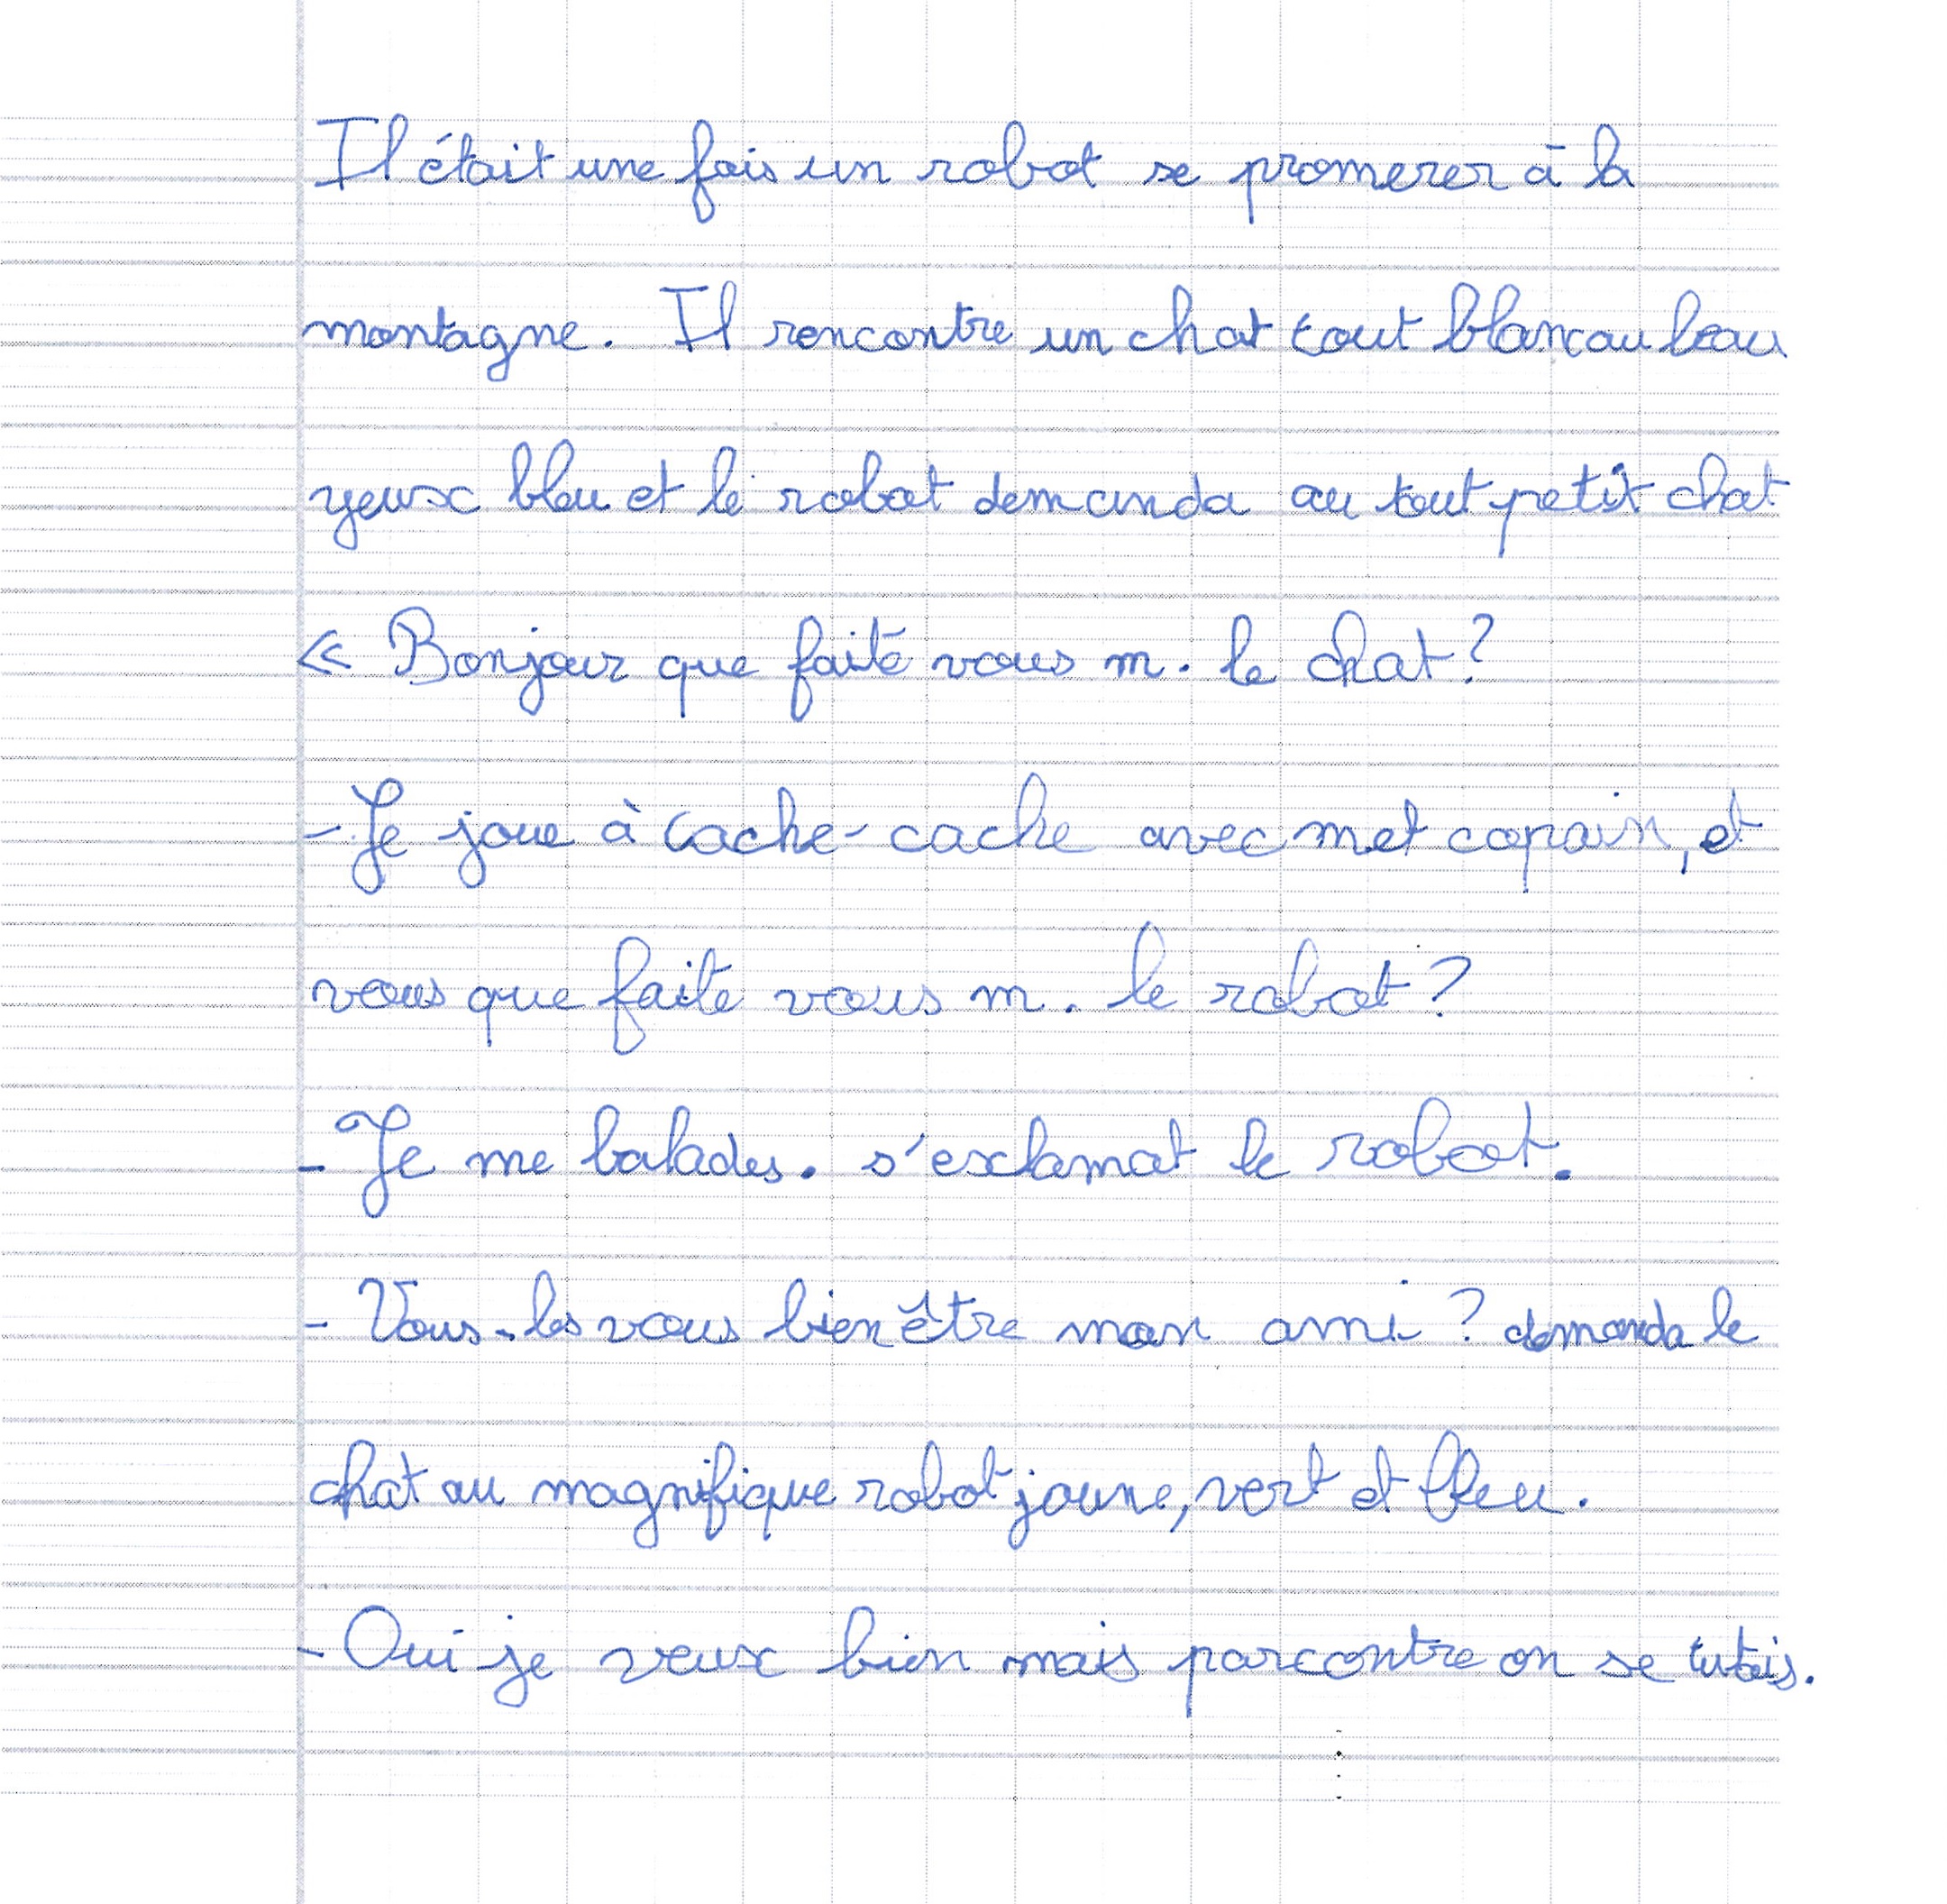 Il était une fois un robot se promener à la
montagne. Il rencontre un chat tout blanc au beau
yeux bleu et le robot demanda au tout petit chat
« Bonjour que faite vous m. le chat ?
- Je joue à cache-cache avec met copain, et
vous que faite vous m. le robot ?
- Je me balades. s'exclamat le robot.
- Vous-les vous bien être mon ami ? demanda le
chat au magnifique robot jaune, vert et bleu.
- Oui je veux bien mais parcontre on se tutois.